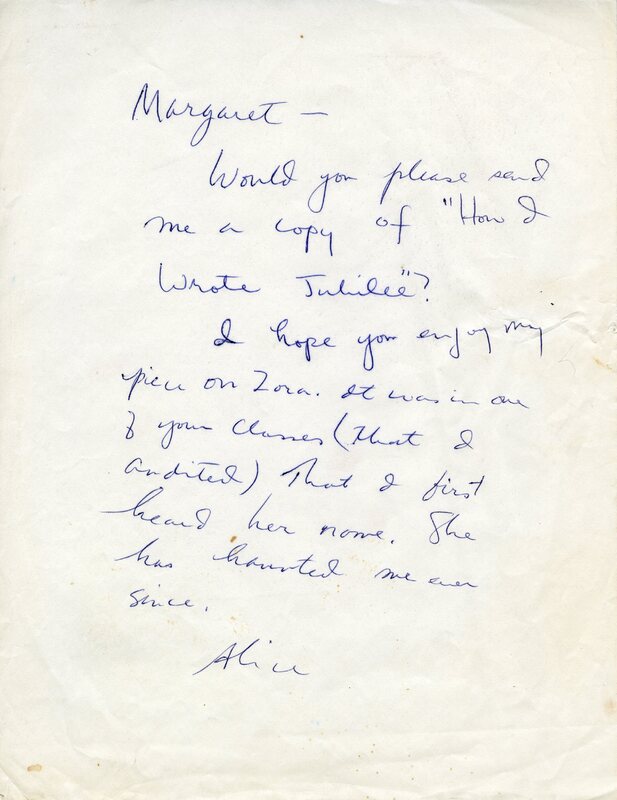 Margaret —
Would you please send
me a copy of "How I
Wrote Jubilee"?
I hope you enjoy my
piece on Zora. It was in one
of your classes (that I
audited) that I first
heard her name. She
has haunted me ever
since.
Alice